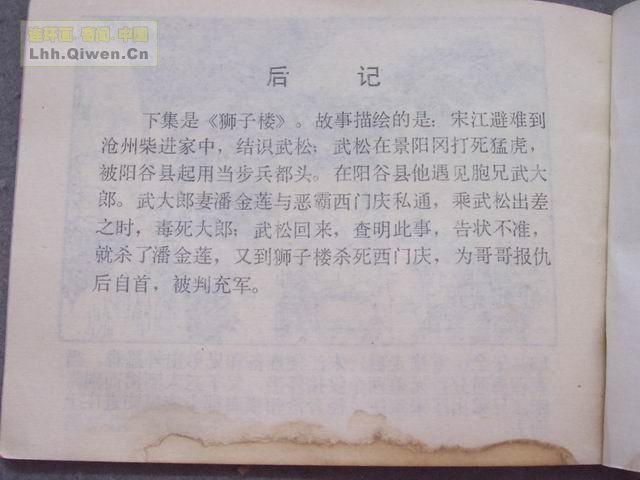 连环画·奇闻·中国
Lhh.Qiwen.Cn
后 记
下集是《狮子楼》。故事描绘的是：宋江避难到
沧州柴进家中，结识武松；武松在景阳冈打死猛虎，
被阳谷县起用当步兵都头。在阳谷县他遇见胞兄武大
郎。武大郎妻潘金莲与恶霸西门庆私通，乘武松出差
之时，毒死大郎；武松回来，查明此事，告状不准，
就杀了潘金莲，又到狮子楼杀死西门庆，为哥哥报仇
后自首，被判充军。